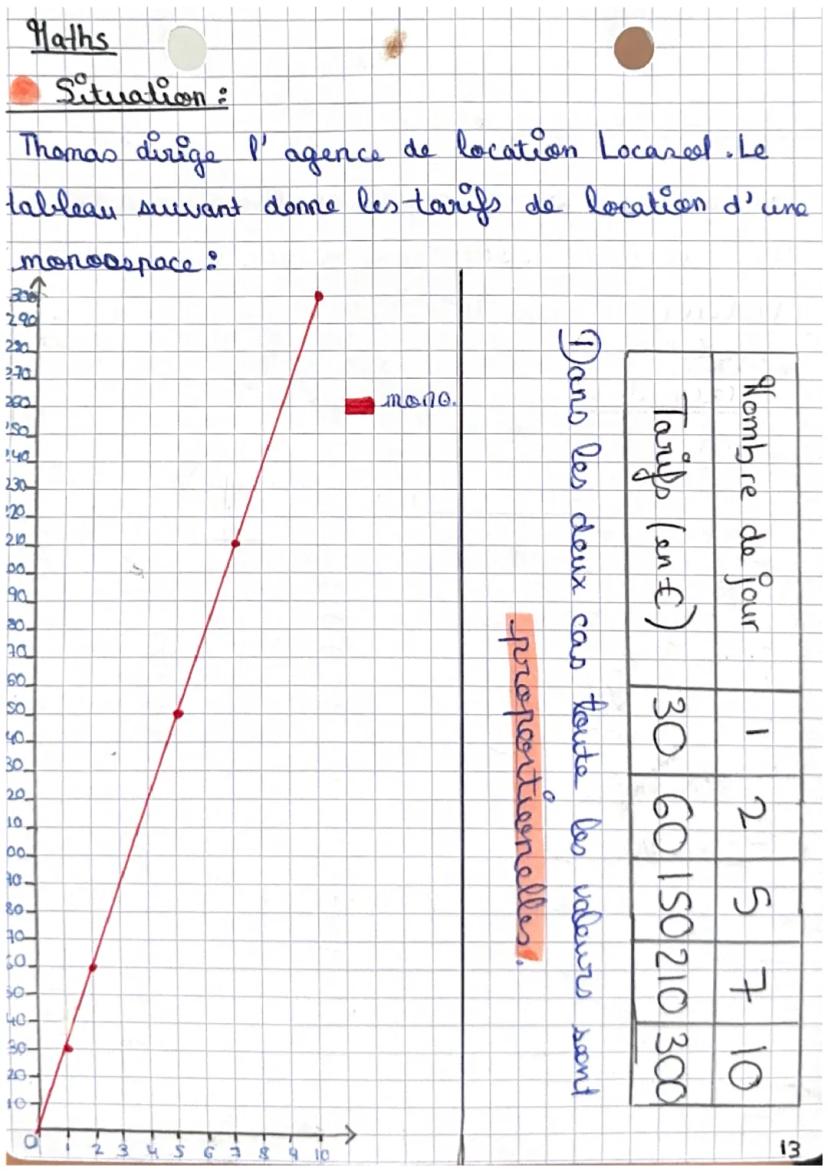 Maths
Situation :
Thomas dirige l'agence de location Locazol. Le
tableau suivant donne les tarifs de location d'une
monoospace :
300
290
280
270
260
250
240
230
220
210
00
90
80
70
60
50
40
30
20
10
00
90
80
70
60
50
40
30
20
10
0 1 2 3 4 5 6 7 8 9 10
mono.
Nombre de jour 1 2 5 7 10
Tarifs (en €) 30 60 150 210 300
Dans les deux cas toute les valeurs sont
proportionelles.
13